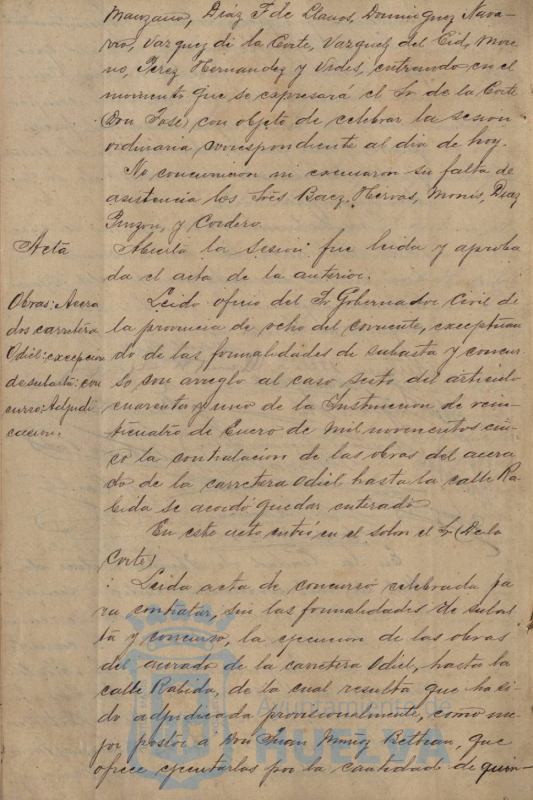 Manzano, Diaz F de Llanos, Dominguez Nava-
rro, Vazquez di la Corte, Vazquez del Cid, More
no, Perez Hernandez y Vides, entrando en el
momento que se expresará el Sr de la Corte
(Don José) con objeto de celebrar la sesion
ordinaria correspondiente al dia de hoy.
No concurrieron ni excusaron su falta de
asistencia los Sres Baez, Hervas, Monis, Diaz
Pinzon, y Cordero.
Acta
Abierta la sesion fue leida y aproba
da el acta de la anterior.
Obras: Acera
dos carretera
Odiel: excepcion
de subasta: con
curso: Adjudi
cacion.
Leido oficio del Sr Gobernador Civil de
la provincia de ocho del corriente, exceptuan
do de las formalidades de subasta y concur
so con arreglo al caso sesto del articulo
cuarenta y uno de la Instruccion de vein
ticuatro de Enero de mil novecientos cin
co la contratacion de las obras del acera
do de la carretera Odiel hasta la calle Ra
bida se acordó quedar enterado.
En este acto entró en el salon el Sr (De la
Corte)
Leida acta de concurso celebrada pa
ra contratar, sin las formalidades de subas
ta y concurso, la ejecucion de las obras
del acerado de la carretera Odiel, hasta la
calle Rabida, de la cual resulta que ha si
do adjudicada provisionalmente, como me
jor postor á Don Juan Muñoz Beltran, que
ofrece ejecutarlas por la cantidad de quin-
Ayuntamiento de
HUELVA